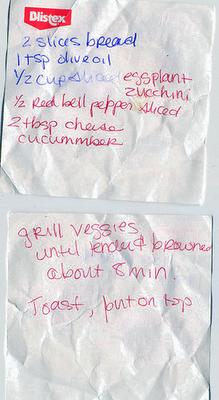 Blistex
2 slices bread
1 tsp olive oil
1/2 cup sliced eggplant
zucchini
1/2 red bell pepper sliced
2 tbsp cheese
cucummber
grill veggies
until tender & browned
about 8 min.
Toast, put on top